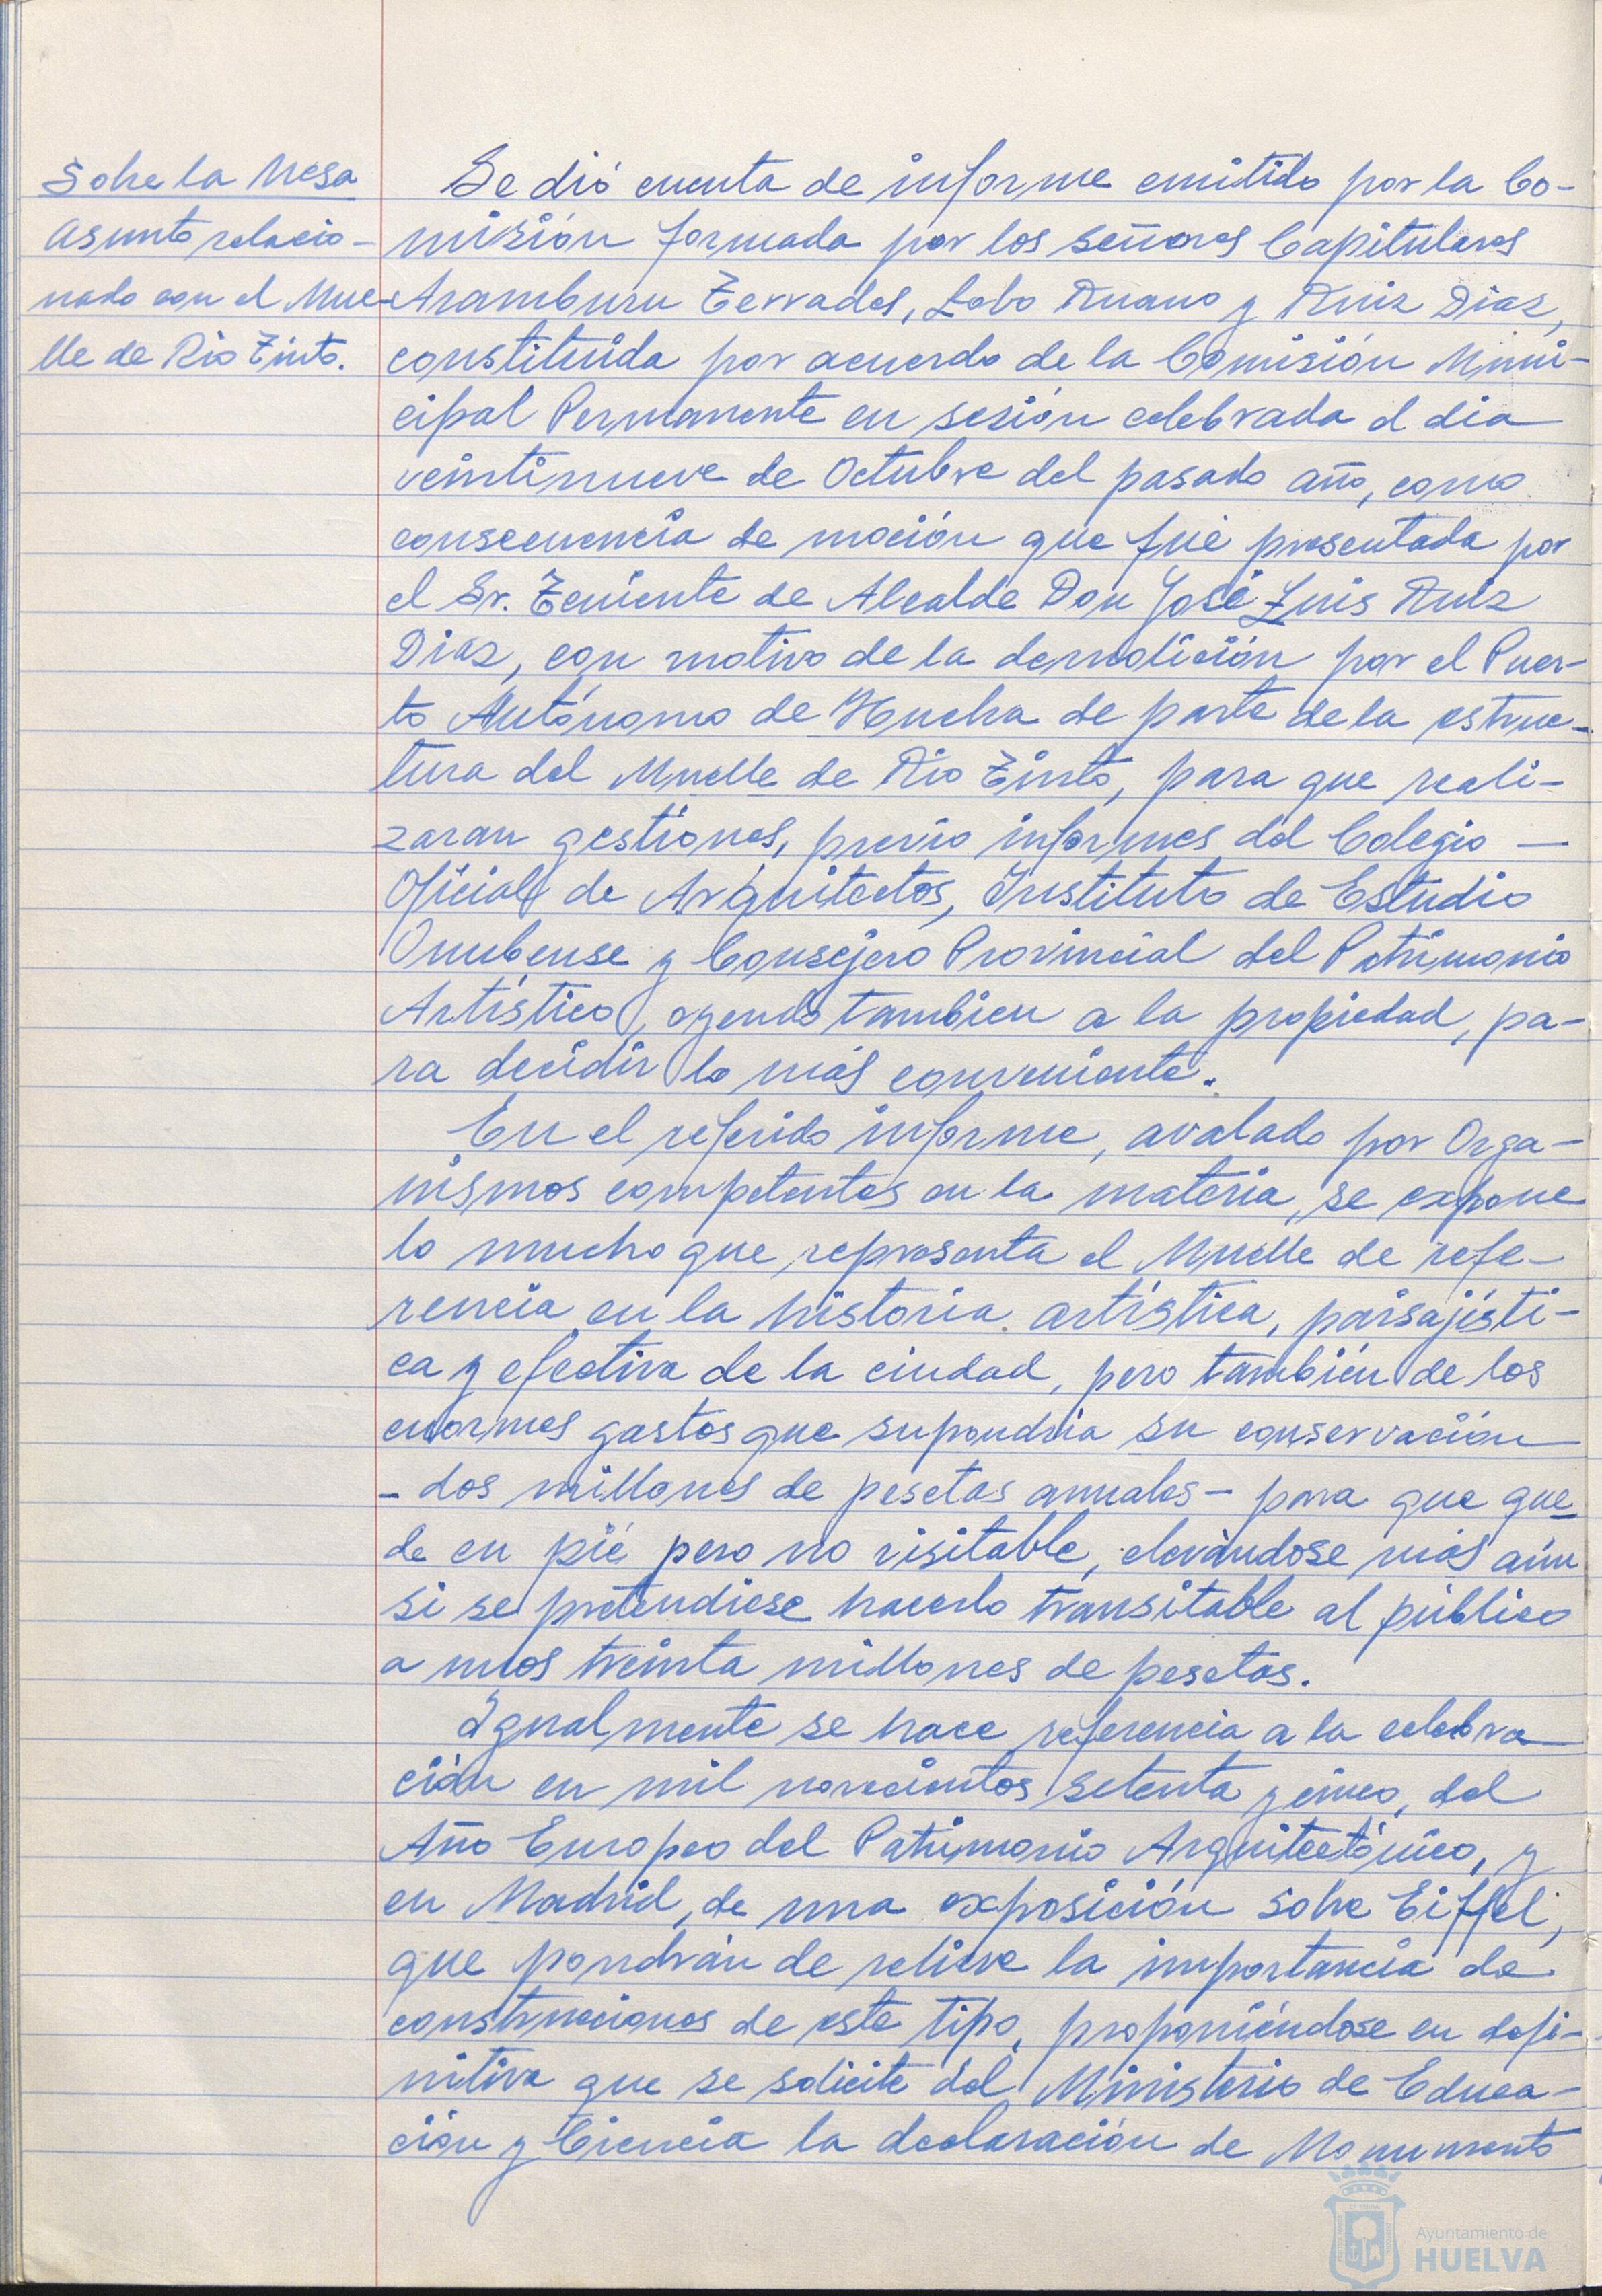 Sobre la Mesa
asunto relacio-
nado con el Mue-
lle de Rio Tinto.
Se dió cuenta de informe emitido por la Co-
misión formada por los señores Capitulares
Aramburu Terrades, Lobo Ruano y Ruiz Diaz,
constituida por acuerdo de la Comisión Muni-
cipal Permanente en sesión celebrada el dia
veintinueve de Octubre del pasado año, como
consecuencia de moción que fué presentada por
el Sr. Teniente de Alcalde Don José Luis Ruiz
Diaz, con motivo de la demolición por el Puer-
to Autónomo de Huelva de parte de la estruc-
tura del Muelle de Rio Tinto, para que reali-
zaran gestiones, previo informes del Colegio —
Oficial de Arquitectos, Instituto de Estudio
Onubense y Consejero Provincial del Patrimonio
Artístico, oyendo tambien a la propiedad, pa-
ra decidir lo más conveniente.
En el referido informe, avalado por Orga-
nismos competentes en la materia, se expone
lo mucho que representa el Muelle de refe-
rencia en la historia artística, paisajísti-
ca y efectiva de la ciudad, pero también de los
enormes gastos que supondría su conservación
- dos millones de pesetas anuales - para que que
de en pié pero no visitable, elevándose más aún
si se pretendiese hacerlo transitable al público
a unos treinta millones de pesetas.
Igualmente se hace referencia a la celebra
ción en mil novecientos setenta y cinco, del
Año Europeo del Patrimonio Arquitectónico, y
en Madrid, de una exposición sobre Eiffel,
que pondrán de relieve la importancia de
construcciones de este tipo, proponiéndose en defi-
nitiva que se solicite del Ministerio de Educa-
ción y Ciencia la declaración de Monumento
Ayuntamiento de
HUELVA